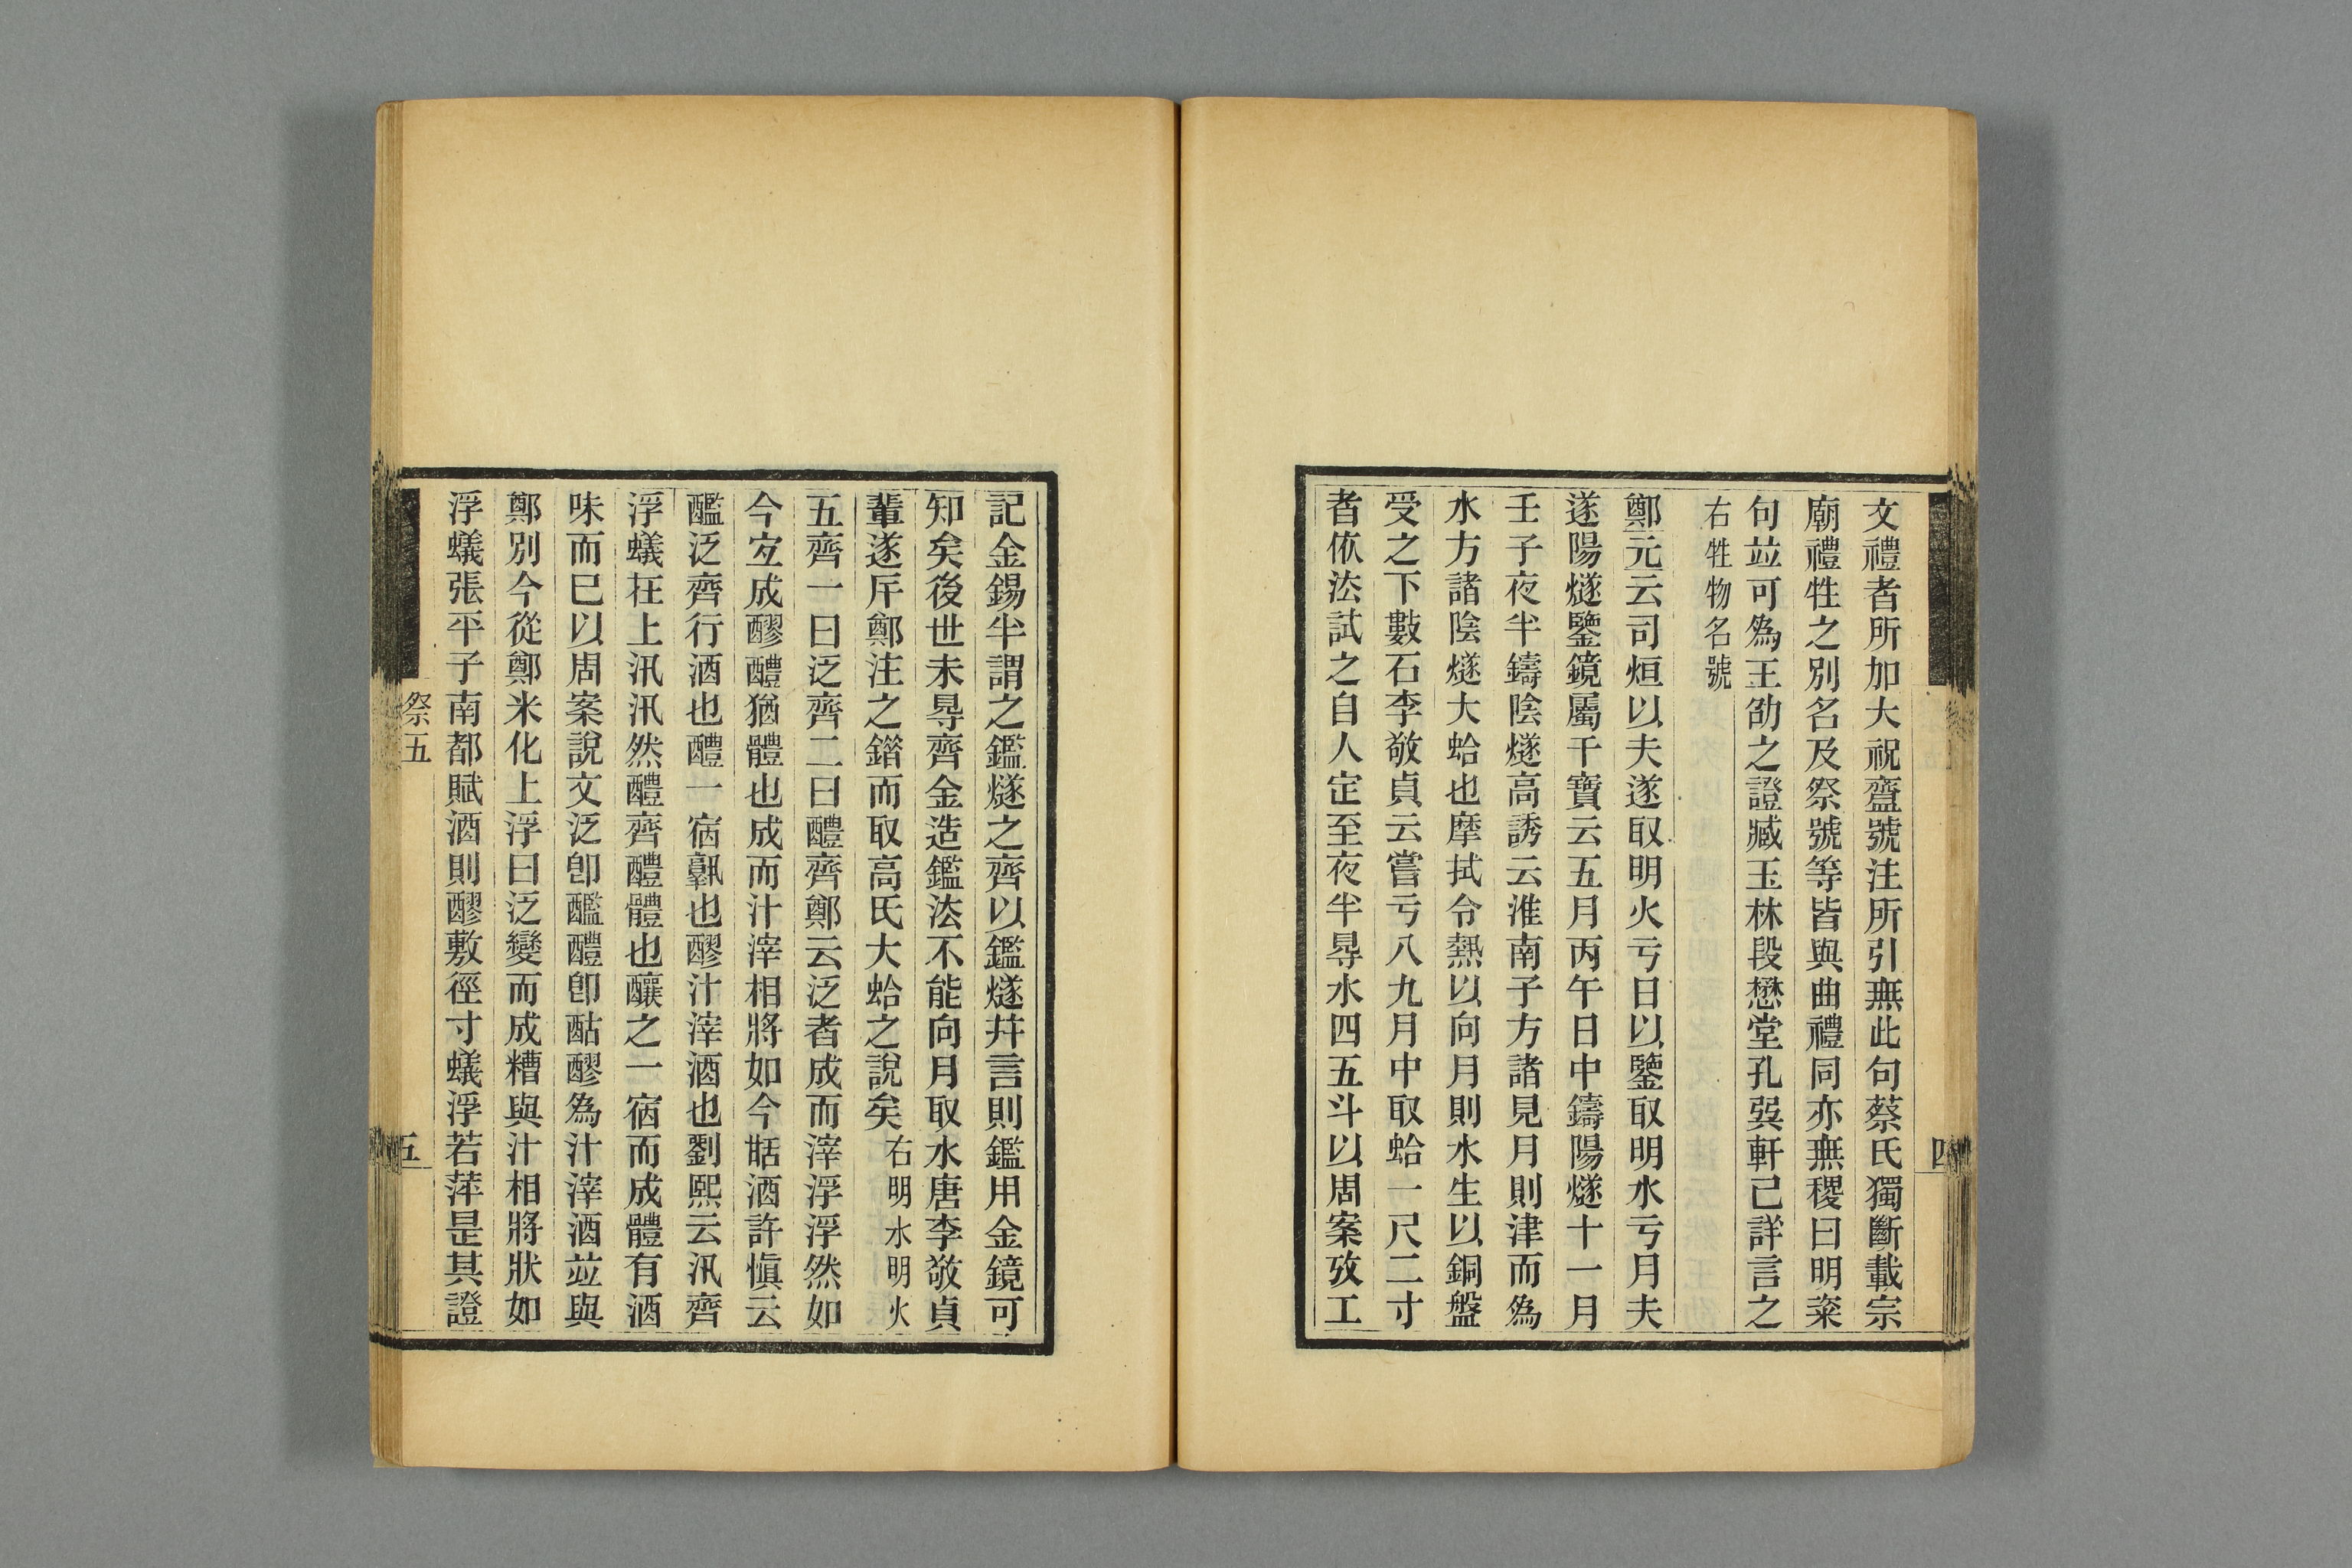 文禮者所加大祝齍號注所引無此句蔡氏獨斷載宗
廟禮牲之別名及祭號等皆與曲禮同亦無稷曰明粢
句竝可爲王劭之證臧玉林段懋堂孔㢲軒已詳言之
右牲物名號
鄭元云司烜以夫遂取明火亏日以鑒取明水亏月夫
遂陽燧鑒鏡屬干寶云五月丙午日中鑄陽燧十一月
壬子夜半鑄陰燧高誘云淮南子方諸見月則津而爲
水方諸陰燧大蛤也摩拭令熱以向月則水生以銅盤
受之下數石李敬貞云嘗亏八九月中取蛤一尺二寸
者依法試之自人定至夜半㝵水四五斗以周案攷工
四
記金錫半謂之鑑燧之齊以鑑燧幷言則鑑用金鏡可
知矣後世未㝵齊金造鑑法不能向月取水唐李敬貞
輩遂斥鄭注之䥘而取高氏大蛤之說矣右明水明火
五齊一曰泛齊二曰醴齊鄭云泛者成而滓浮浮然如
今宐成醪醴猶體也成而汁滓相將如今甛酒許愼云
醽泛齊行酒也醴一宿孰也醪汁滓酒也劉熙云汎齊
浮蟻在上汎汎然醴齊醴體也釀之一宿而成體有酒
味而已以周案說文泛卽醽醴卽酤醪爲汁滓酒竝與
鄭別今從鄭米化上浮曰泛變而成糟與汁相將狀如
浮蟻張平子南都賦酒則醪敷徑寸蟻浮若萍是其證
祭五
五